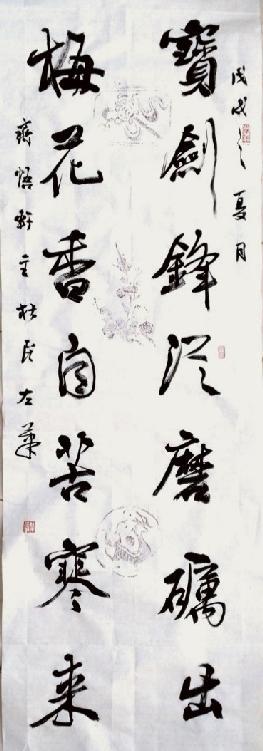 戊戌之夏月
寶劍鋒從磨礪出
梅花香自苦寒來
齋悟軒主杜彥左筆